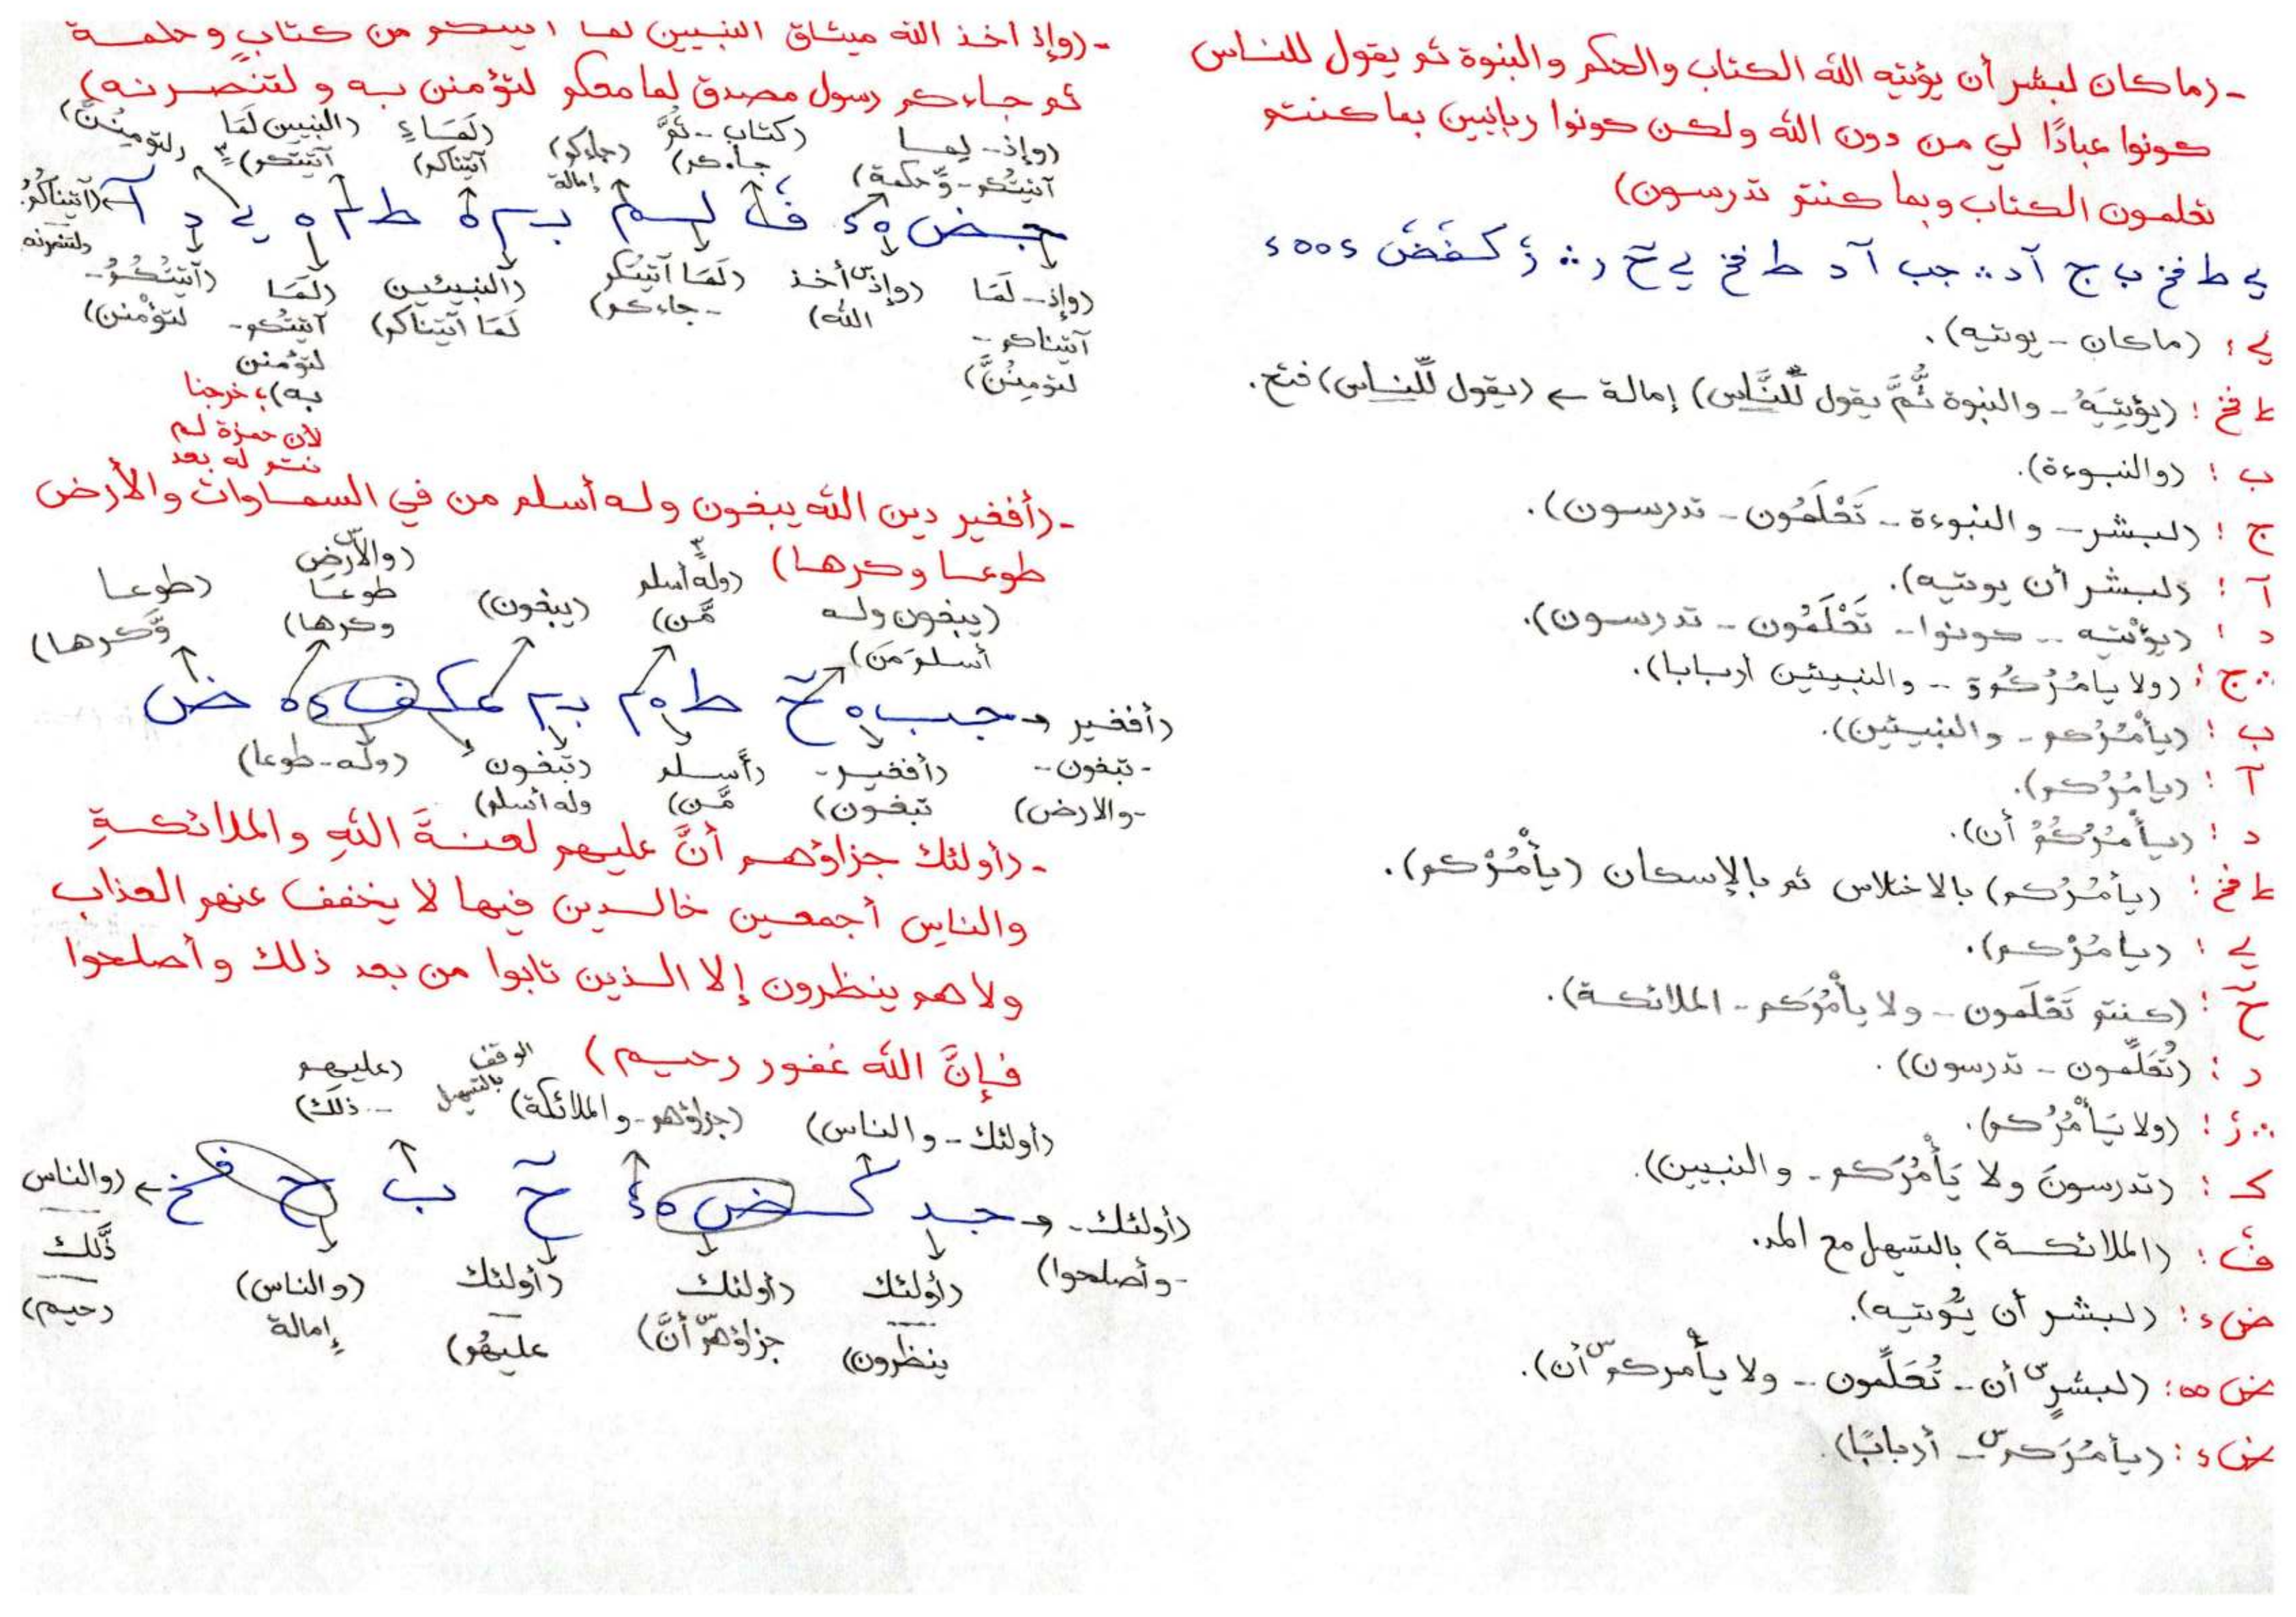 - (ما كان لبشر أن يؤتيه الله الكتاب والحكم والنبوة ثم يقول للناس
كونوا عبادًا لي من دون الله ولكن كونوا ربانيين بما كنتم
تعلمون الكتاب وبما كنتم تدرسون)
ي ط فخ ب ج آ د :. جب آ د ط فخ ي حّ ر :. ز كفض ء ه ه ء
ي : (ما كان - يوتيه).
ط فخ : (يؤتِيَهُ - والنبوة ثُّمَّ يقول لِّلنَّاس) إمالة ← (يقول لِّلناس) فتح.
ب : (والنبوءة).
ج : (لبشر - والنبوءة - تَعْلَمُون - تدرسون).
آ : (لبشر أن يوتيه).
د : (يؤتيه - كونوا - تَعْلَمُون - تدرسون).
:. ج : (ولا يامُرُكُمُ - والنبيئين أربابا).
ب : (يأمُرُكم - والنبيئين).
آ : (يامُرُكم).
د : (يأمُرُكُمُ أن).
ط فخ : (يأمُرُكم) بالاختلاس ثم بالإسكان (يأْمُرْكم).
ي : (يامُرْكم).
حّ : (كنتم تَعْلَمون - ولا يأْمُرَكم - الملائكة).
ر : (تُعَلِّمون - تدرسون).
:. ز : (ولا يَأْمُرُكم).
ك : (تدرسونَ ولا يَأْمُرَكم - والنبيين).
ف : (الملائكة) بالتسهيل مع المد.
ض ء : (لبشر أن يُّوتيه).
ض ه ه : (لبشرٍ س أن - تُعَلِّمون - ولا يأمركم س أن).
ض ء : (يأمُرَكم س - أربابًا).
- (وإذ أخذ الله ميثاق النبيين لما آتيتكم من كتابٍ وحكمة
ثم جاءكم رسول مصدق لما معكم لتؤمنن به ولتنصرنه)
(وإذ - لِما آتيتُكم - وَّحكمة) (كتاب - ثُمَّ جاءكم) (جاءكم) إمالة (لَمَاءٍ آتيناكم) (النبيين لَمَا آتيتكم) (لتومِنُنَّ)
جض ه ء ف لسم بم ه ط م ه ي د آ ← (آتيناكُمُ - ولتنصرنه
(وإذ - لَمَا آتيناكم - لتومِنُنَّ) (وإذ س أخذ الله) (لَمَا آتيتُكم - جاءكم) (النبيئين لَمَا آتيناكم) (لَمَا آتيتُكم - لتؤمنن به) (آتيتُكُمُ - لتؤْمنن)
؛ خرجنا
لأن حمزة لم
ننته له بعد
- (أفغير دين الله يبغون وله أسلم من في السماوات والأرض
طوعا وكرها)
(يبغون وله أسلمَ مَن) (وله أسلم مَّن) (يبغون) (والأرض طوعًا وكرها) (طوعا وَّكرها)
(أفغير - تبغون - والارض) ← و جب ه حّ ط ه م بم عكف ء ه ض
(أفغير - تبغون) (أسلم مَّن) (تبغون وله أسلم) (وله - طوعا)
- (أولئك جزاؤهم أنَّ عليهم لعنةَ اللهِ والملائكةِ
والناسِ أجمعين خالدين فيها لا يخفف عنهم العذاب
ولا هم ينظرون إلا الذين تابوا من بعد ذلك وأصلحوا
فإنَّ الله غفور رحيم)
(أولئك - والناس) (جزاؤهم - والملائكة) الوقف بالتسهيل (عليهم - ذلك)
(أولئك - وأصلحوا) ← و جد ك ض ه ء حّ ب ح فخ ← (والناس - ذَّلك - رحيم)
(أولئك - ينظرون) (أولئك جزاؤهم س أنَّ) (أولئك - عليهُم) (والناس) إمالة